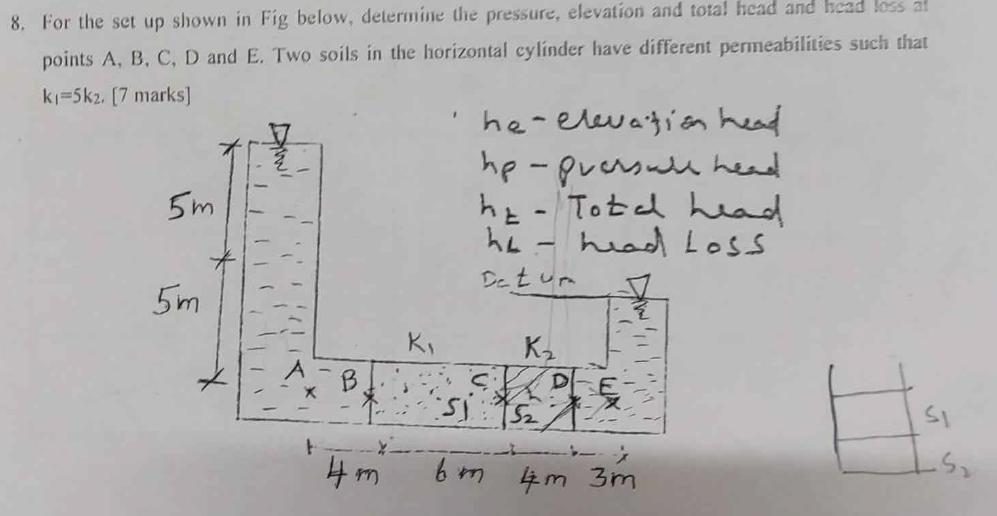 8. For the set up shown in Fig below, determine the pressure, elevation and total head and head loss at
points A, B, C, D and E. Two soils in the horizontal cylinder have different permeabilities such that
k₁=5k₂. [7 marks]
he - elevation head
hp - pressure head
ht - Total head
hL - head Loss
Datum
5m
5m
K₁
K₂
A
B
C
D
E
S1
S2
4m
6m
4m
3m
S1
S2